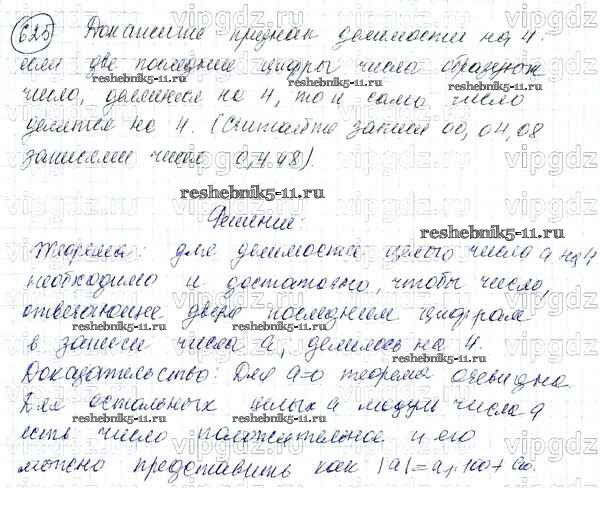 625 Докажите признак делимости на 4.
если две последние цифры числа образуют
число, делящееся на 4, то и само число
делится на 4. (Считайте записи 00, 04, 08
записями числ 0, 4. 48).
reshebnik5-11.ru
Решение:
Теорема: для делимости целого числа a на 4
необходимо и достаточно, чтобы число,
отвечающее двум последним цифрам
в записи числа a, делилось на 4.
Доказательство: Для a=0 теорема очевидна
Для остальных целых a модуль числа a
есть число положительное и его
можно представить как |a|=a₁·100+a₀.